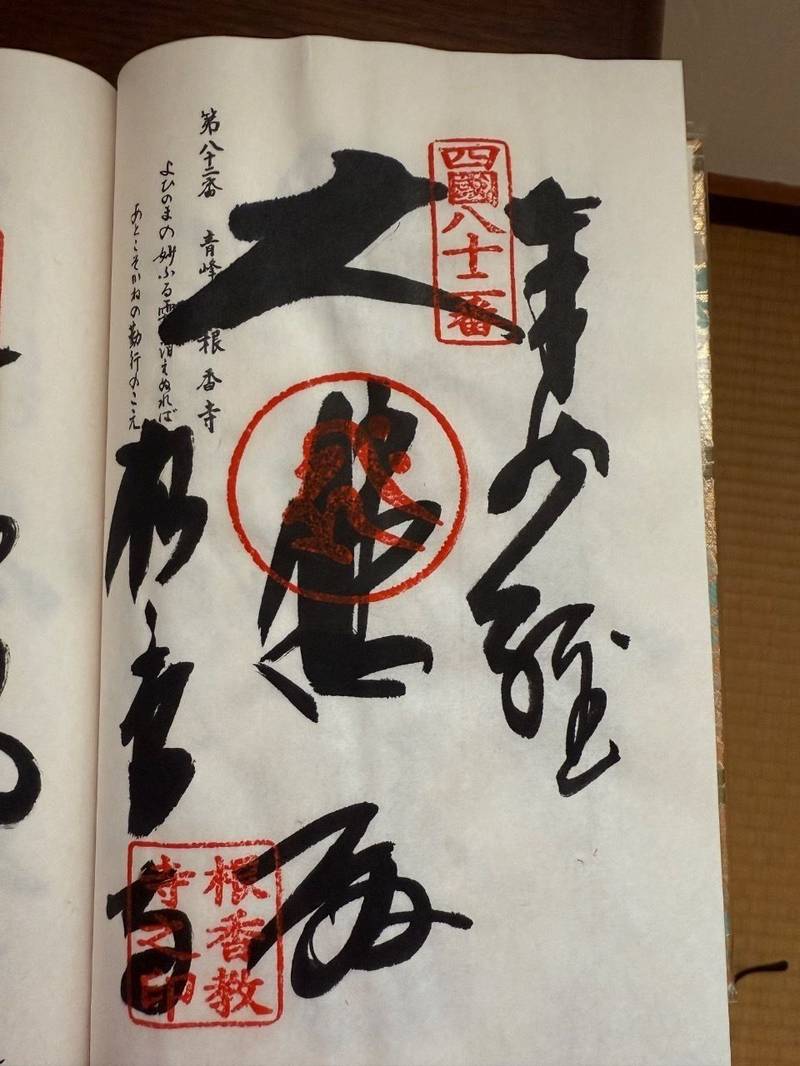 四國八十二番
奉納経
大悲殿
根香寺
根香教
寺之印
第八十二番 青峰 根香寺
よひのまの 妙ふる霜の消えぬれば
あとこそかねの勤行のこえ